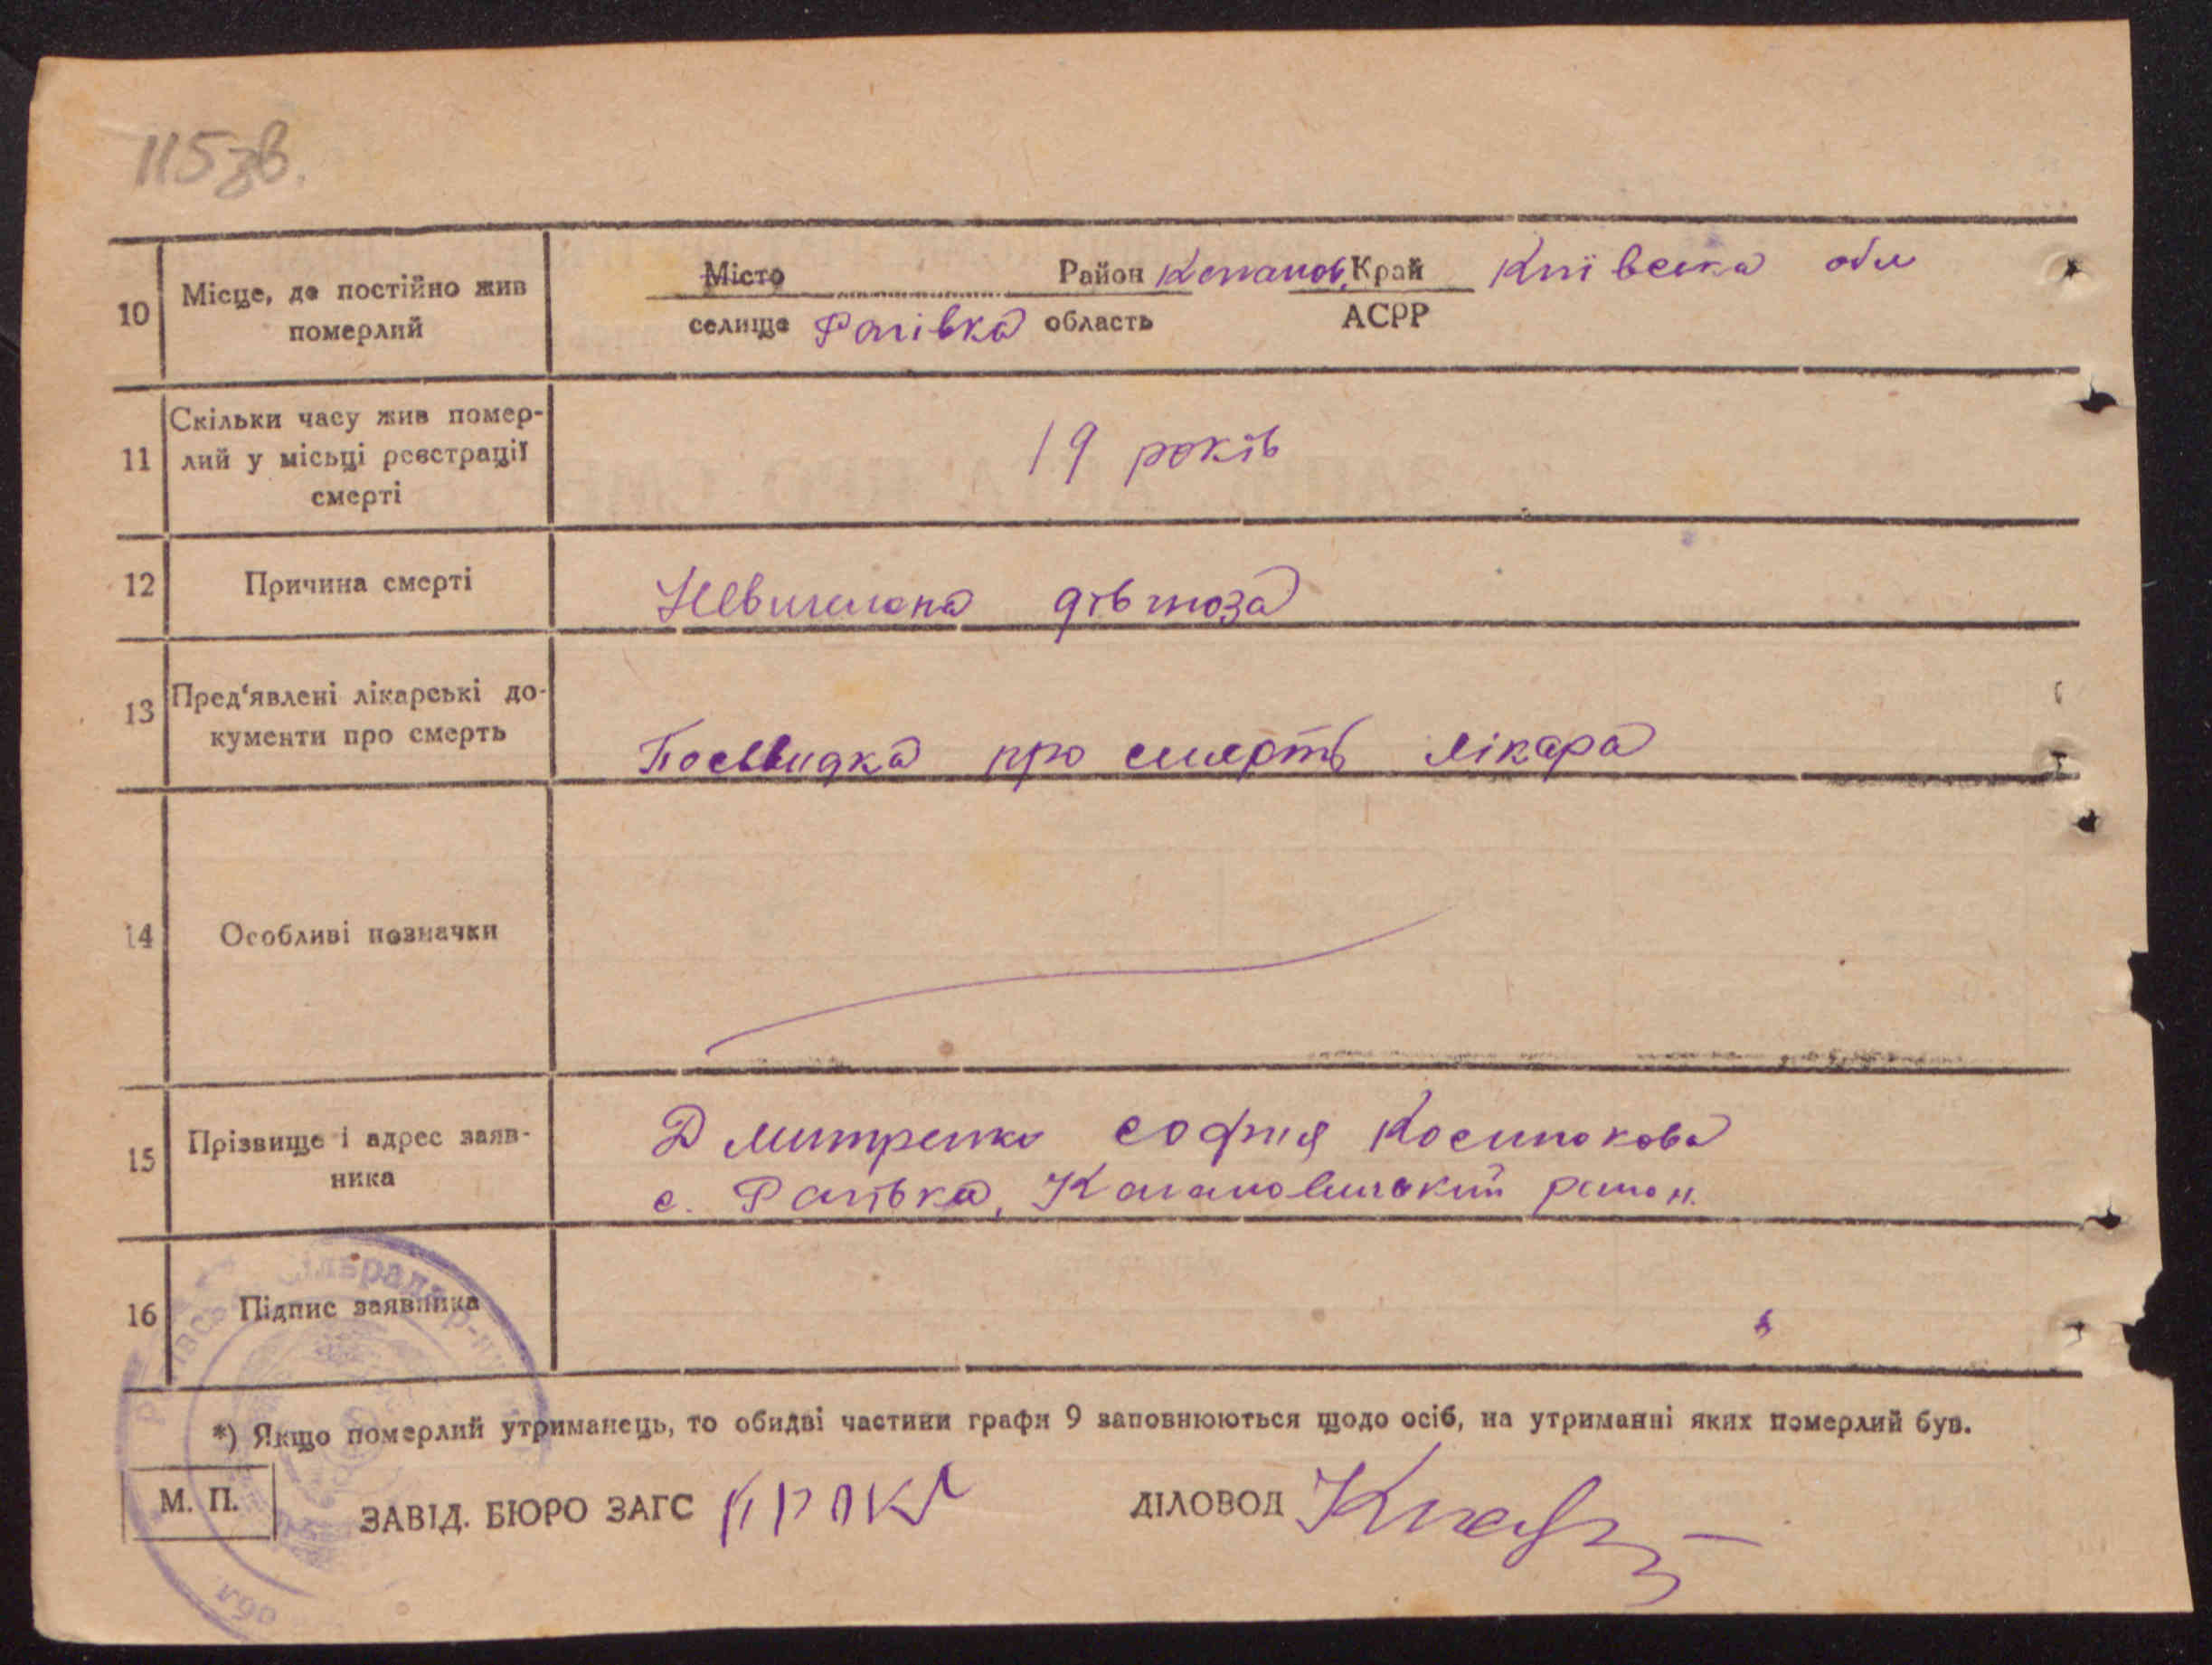 115зв.
10 Місце, де постійно жив померлий
Місто Район Край Київська обл
селище Рагівка область АСРР
11 Скільки часу жив помер-
лий у місьці реєстрації
смерті
19 років
12 Причина смерті
13 Пред'явлені лікарські до-
кументи про смерть
Посвидка про смерть лікара
14 Особливі позначки
15 Прізвище і адрес заяв-
ника
Дмитренко софия
с. Рагівка, Кагановицький район.
16 Підпис заявника
*) Якщо померлий утриманець, то обидві частини графи 9 заповнюються щодо осіб, на утриманні яких померлий був.
М. П.
ЗАВІД. БЮРО ЗАГС
ДІЛОВОД
обл